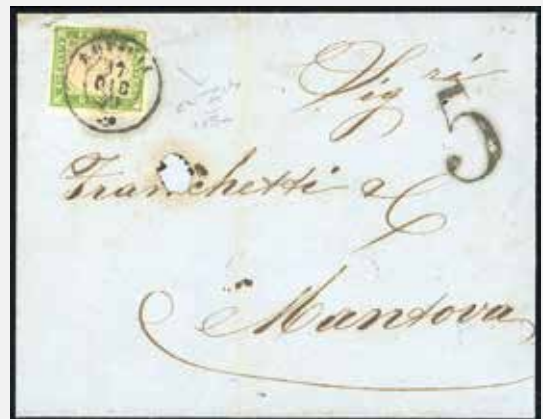 17
DIC
Sig.ri
5
Franchetti & C
Mantova